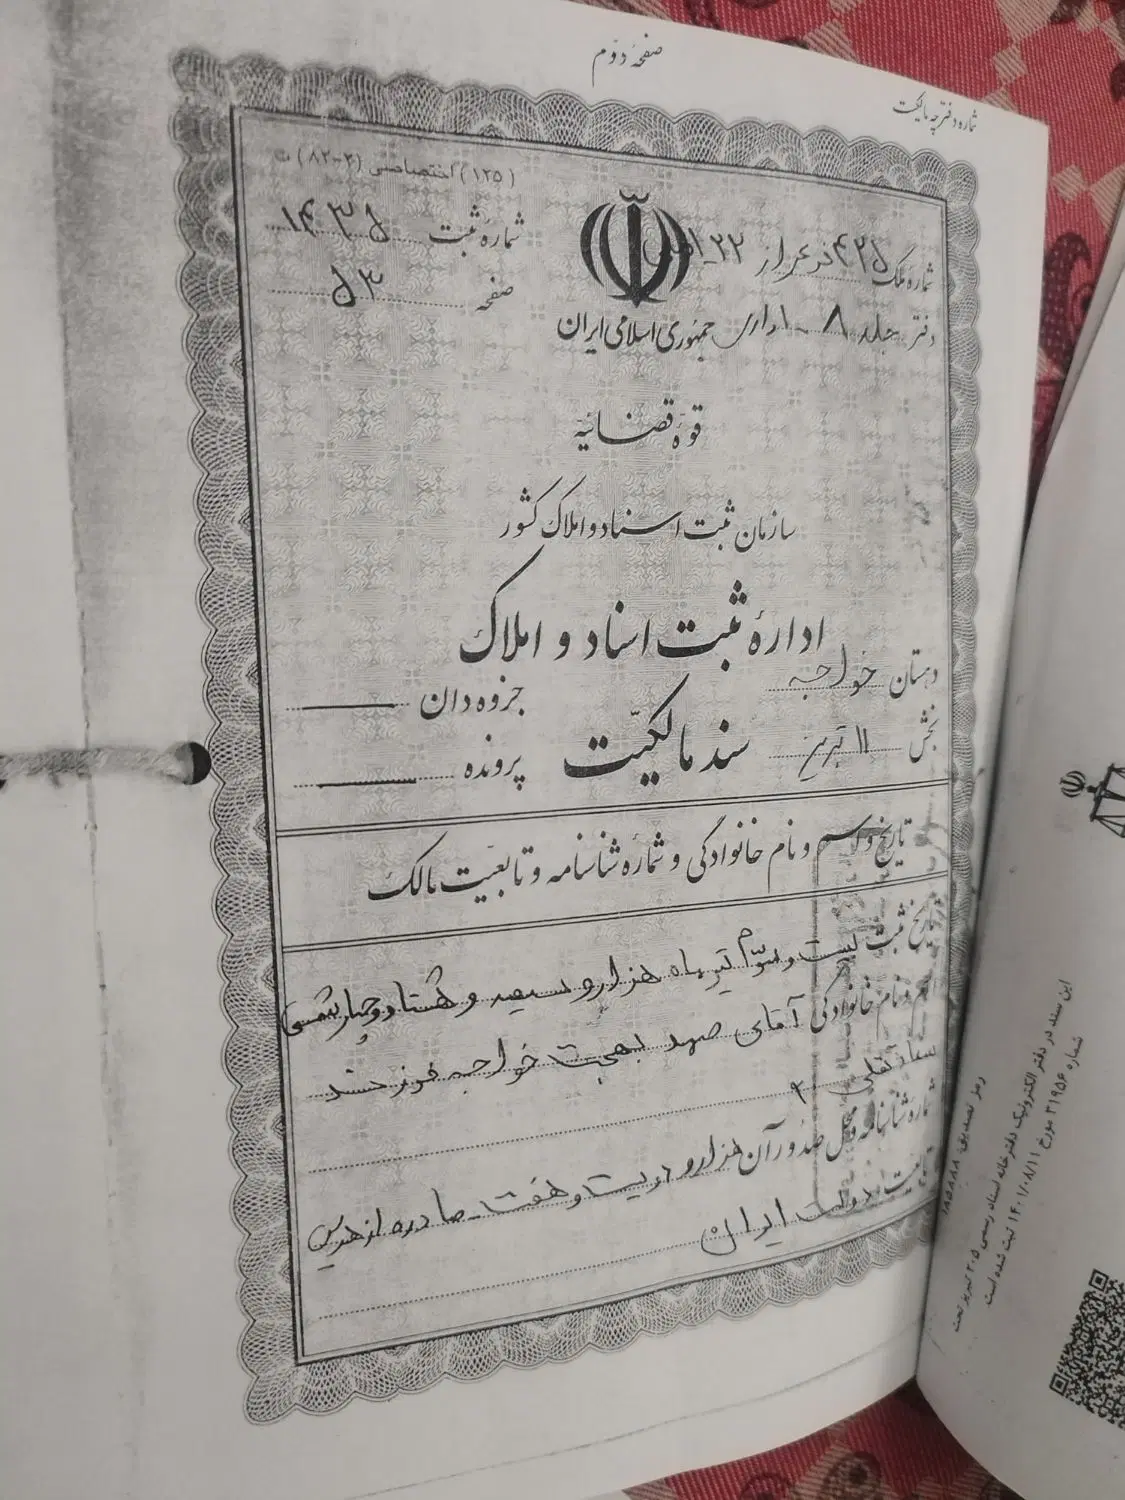 صفحهٔ دوّم
شماره دفترچه مالکیت
(۱۲۵) اختصاصی (۳-۸۲)
شماره ملک ۴۲۵ فرعی از ۲۲ـ اصلی
شمارهٔ ثبت ۱۴۳۵
دفتر جلد ۸ ـ اداری
صفحه ۵۳
جمهوری اسلامی ایران
قوهٔ قضائیه
سازمان ثبت اسناد و املاک کشور
ادارهٔ ثبت اسناد و املاک
دهستان خواجه
جزوه دان
بخش ۱۱ تبریز
سند مالکیّت
پرونده
تاریخ و اسم و نام خانوادگی و شمارهٔ شناسنامه و تابعیّت مالک
تاریخ ثبت بیست و سوّم تیر ماه هزار و سیصد و هشتاد و چهار شمسی
اسم و نام خانوادگی آقای صمد بهجت خواجه فرزند
شماره شناسنامه و محل صدور آن هزار و دویست و هفت ـ صادره از هریس
تابعیت دولت ایران
رمز تصدیق: ۱۸۵۸۸۸
این سند در دفتر الکترونیک دفترخانه اسناد رسمی ۲۰۵ تبریز تحت
شماره ۳۱۹۵۶ مورخ ۱۴۰۱/۰۸/۱۱ ثبت شده است.